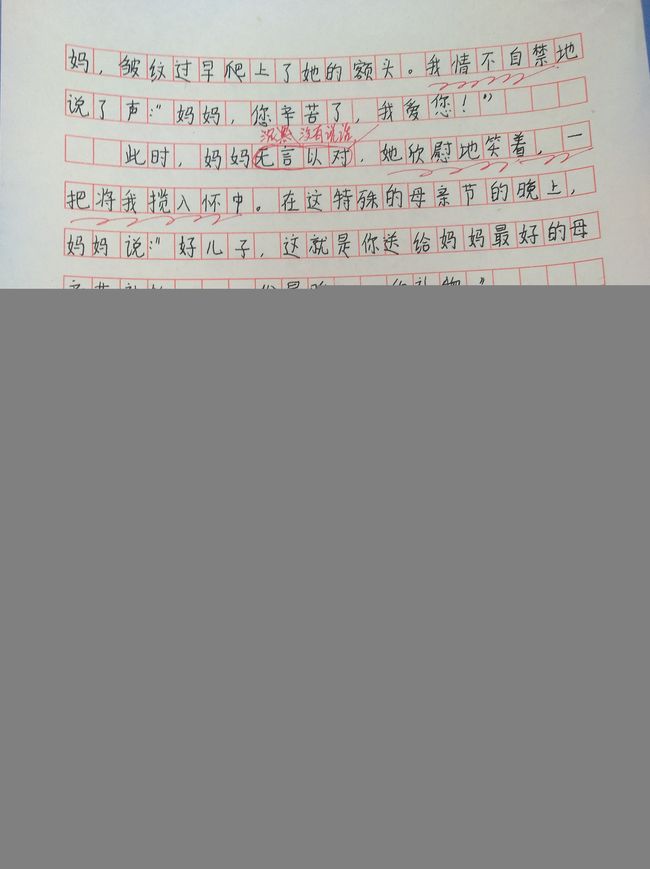 妈，皱纹过早爬上了她的额头。我情不自禁地
说了声："妈妈，您辛苦了，我爱您！"
沉默 没有说话
此时，妈妈无言以对，她欣慰地笑着，一
把将我揽入怀中。在这特殊的母亲节的晚上，
妈妈说："好儿子，这就是你送给妈妈最好的母